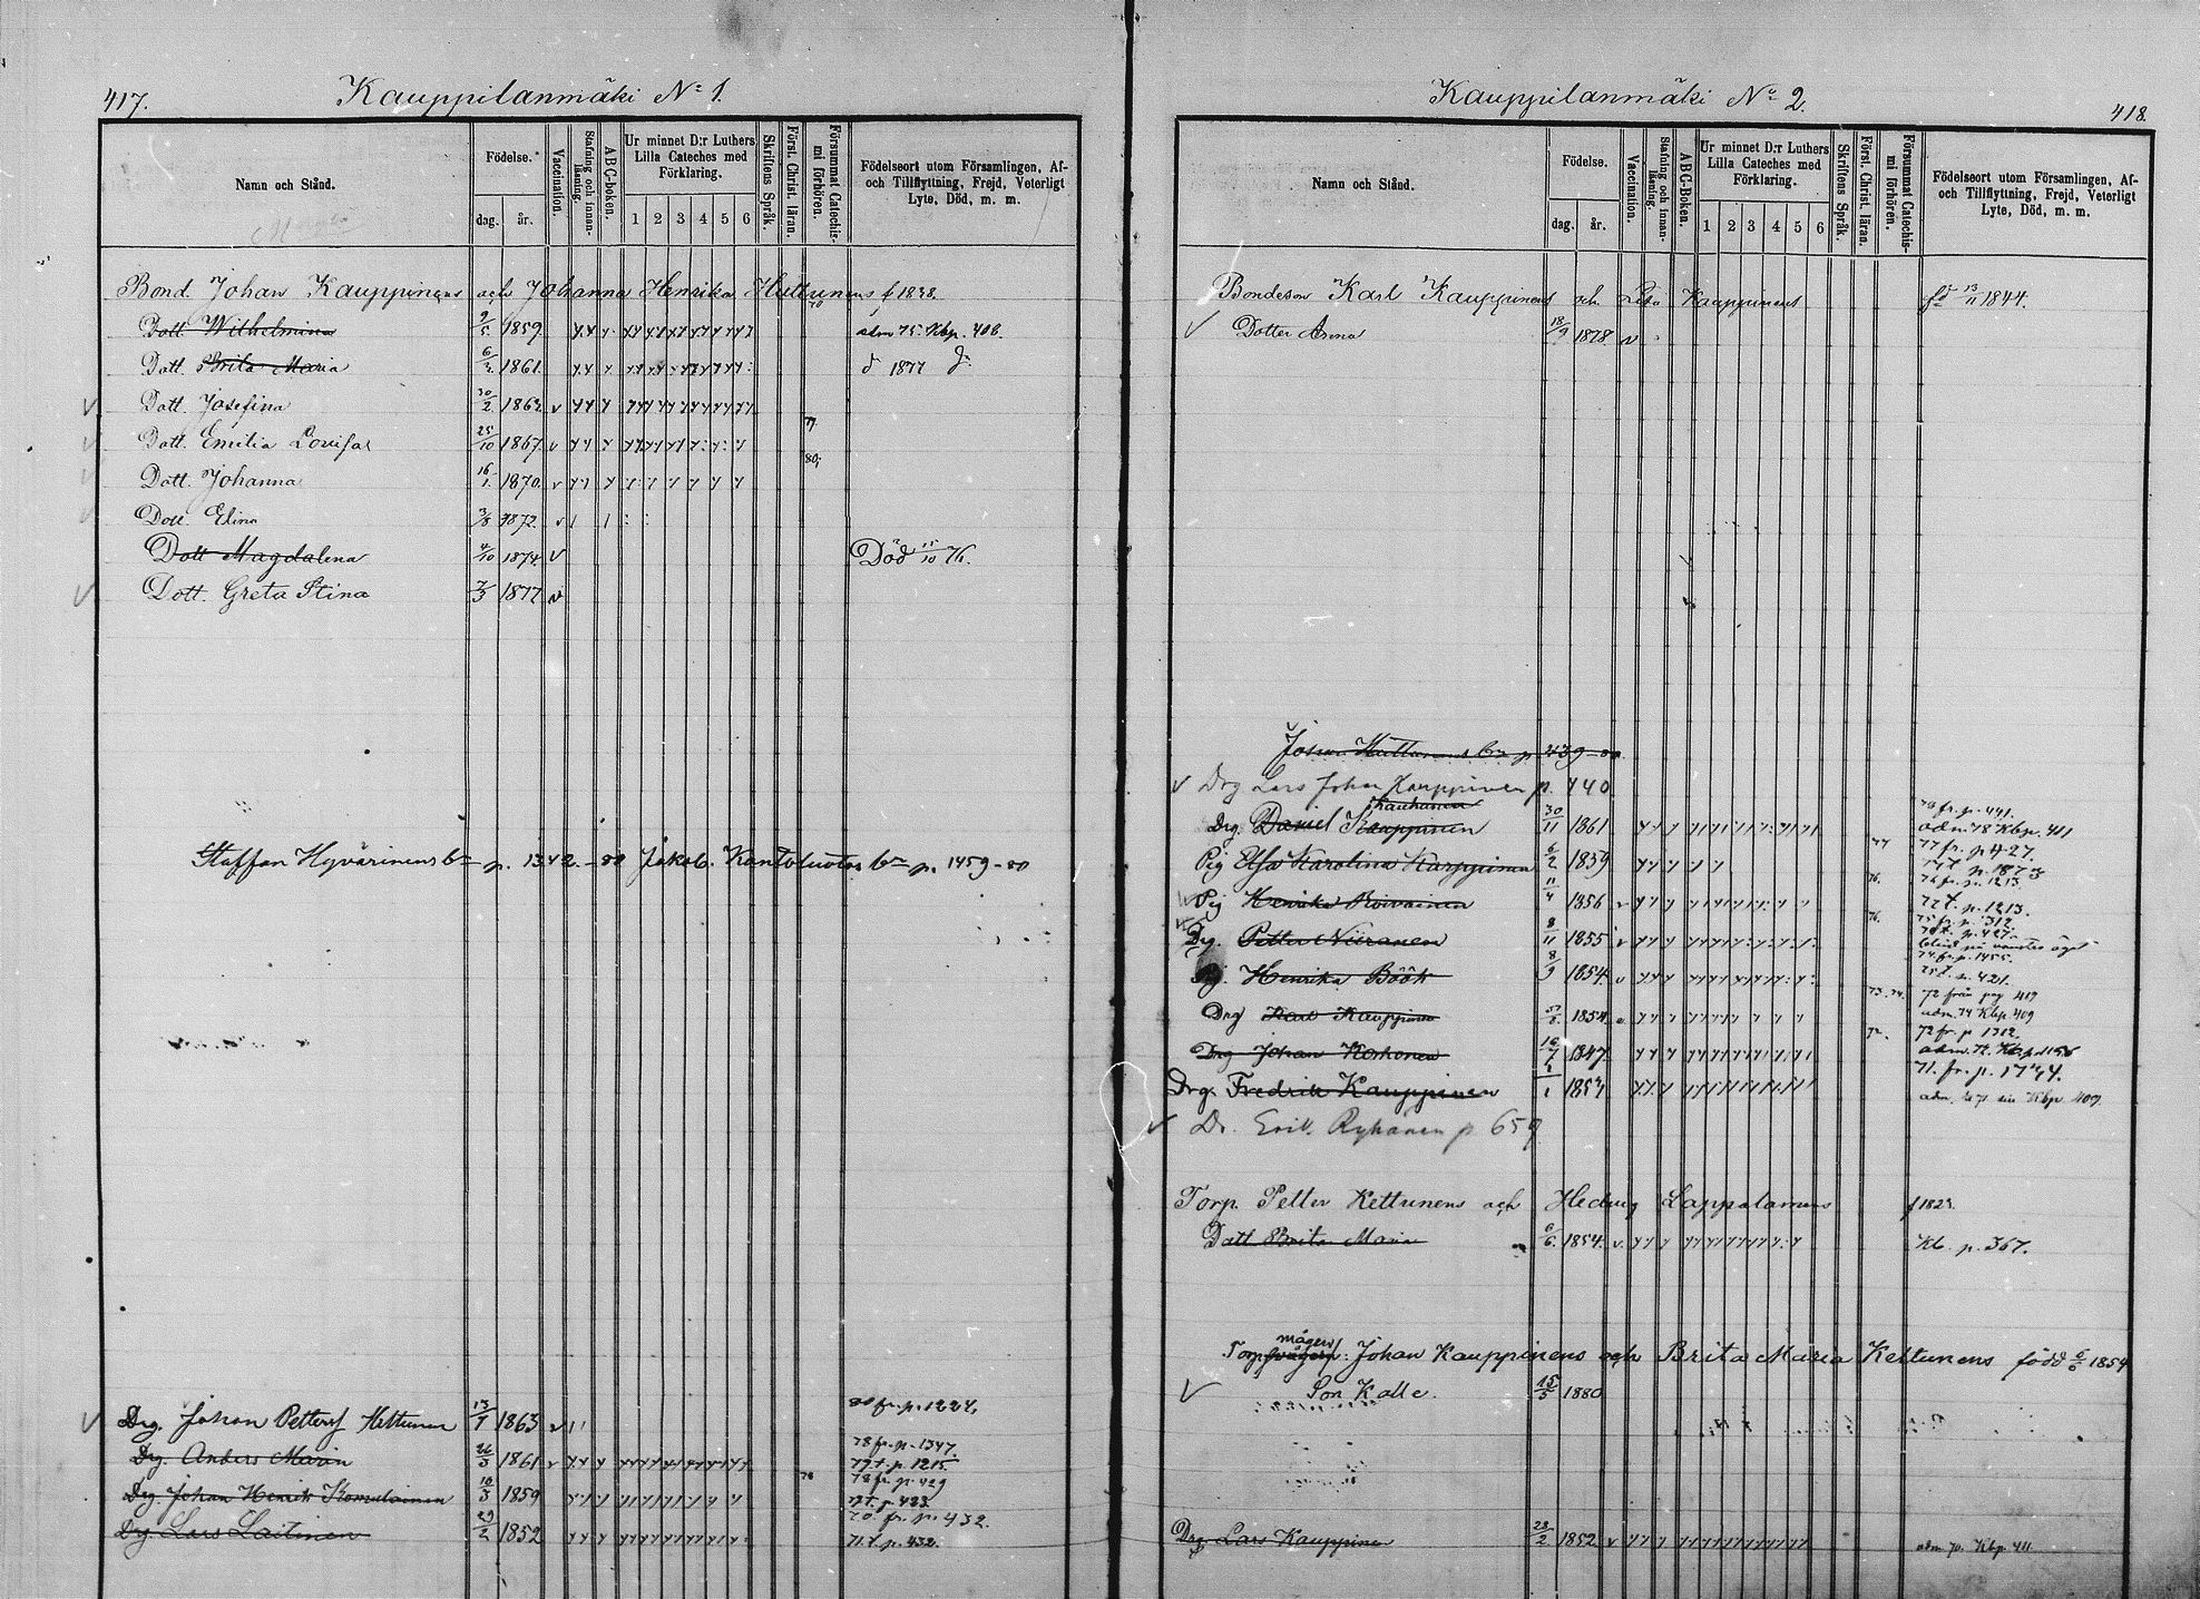 417.
Kauppilanmäki No 1.
Namn och Stånd.
Födelse.
dag.
år.
Vaccination.
Stafning och innan-läsning.
ABC-boken.
Ur minnet D:r Luthers Lilla Cateches med Förklaring.
1 2 3 4 5 6
Skriftens Språk.
Först. Christ. läran.
Försummat Catechis-mi förhören.
Födelseort utom Församlingen, Af- och Tillflyttning, Frejd, Veterligt Lyte, Död, m. m.
Bond. Johan Kauppinens och Johanna Henrika Huttunens f 1838.
Dott. Wilhelmina 9/5 1859 adm 75. Kbp. 408.
Dott. Brita Maria 6/2 1861. d 1877
Dott. Josefina 30/2 1863 v
Dott. Emilia Lovisa 25/10 1867. v 77.
Dott. Johanna 16/1 1870. v 80;
Dott. Elina 3/8 1872. v
Dott Magdalena 4/10 1874. v Död 15/10 76.
Dott. Greta Stina 7/3 1877 v
Staffan Hyvärinens bn p. 1342.-80 Jakob. Kantoluotos bn p. 1459-80
Drg. Johan Petter Kettunen 13/1 1863 v 80 fr. p. 1224.
Drg. Anders Marin 26/3 1861 v 78 fr. p. 1347.
79 t. p. 1215.
Drg. Johan Henrik Komulainen 10/3 1859 78 78 fr. p. 429
79 t. p. 423.
Drg. Lars Laitinen 29/2 1852 70. fr. p. 432.
71. t. p. 432.
Kauppilanmäki No 2.
418.
Namn och Stånd.
Födelse.
dag.
år.
Vaccination.
Stafning och innan-läsning.
ABC-Boken.
Ur minnet D:r Luthers Lilla Cateches med Förklaring.
1 2 3 4 5 6
Skriftens Språk.
Först. Christ. läran.
Försummat Catechis-mi förhören.
Födelseort utom Församlingen, Af- och Tillflyttning, Frejd, Veterligt Lyte, Död, m. m.
Bondeson Karl Kauppinens och Lisa Kauppinens fd 13/11 1844.
Dotter Anna 18/9 1878 v
Johan Huttunens bn p 439-80.
Drg Lars Johan Kauppinen p. 440
Kauhanen
Drg. Daniel Kauppinen 30/11 1861 78 fr. p. 441.
adm. 78 Kbp. 411
Pig Elsa Karolina Karppinen 6/2 1859 77 77 fr. p 427.
77 t. p. 1873
Pig Henrika Roivainen 11/4 1856 v 76. 76 fr. p. 1213.
77 t. p. 1213.
Drg. Petter Niiranen 8/11 1855 v 76. 75 fr. p. 312
76 t. p. 427.
blind på venstra ögat
Pig. Henrika Böök 8/9 1854. v 74 fr. p. 1455.
75 t. p. 421.
Drg Karl Kauppinen 1854. 73. 74. 72 från pag 419
adm. 74 Kbp. 409
Drg Johan Korhonen 16/7 1847 72. 72 fr. p 1312.
adm. 72. Kb. p. 1156
Drg. Fredrik Kauppinen 1/1 1853 71. fr. p. 1744.
Dr. Erik Ryhänen p 659
Torp. Petter Kettunens och Hedvig Lappalainens f 1823.
Dott Brita Maria 6/6. 1854. v. Kb. p. 367.
mågen
Torp. svågern: Johan Kauppinens och Brita Maria Kettunens född 6/6 1854
Son Kalle. 15/5 1880
Drg Lars Kauppinen 28/2 1852 v adm 70. Kbp. 411